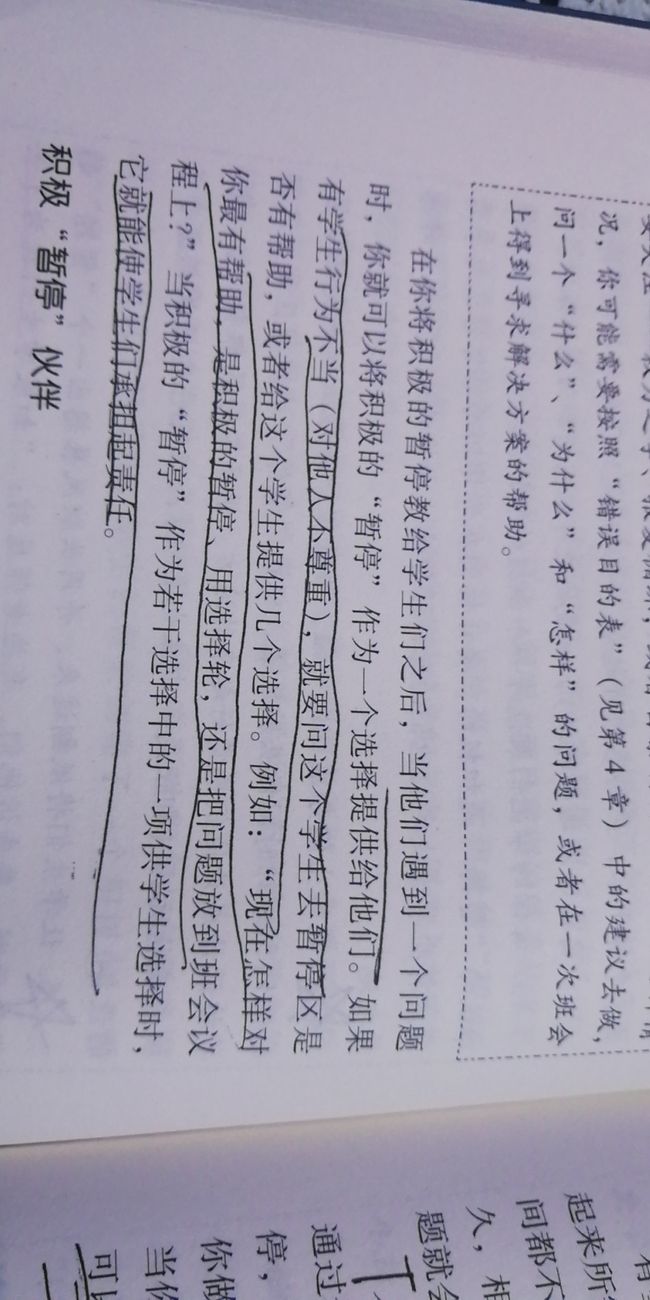 况，你可能需要按照“错误目的表”（见第4章）中的建议去做，
问一个“什么”、“为什么”和“怎样”的问题，或者在一次班会
上得到寻求解决方案的帮助。
在你将积极的暂停教给学生们之后，当他们遇到一个问题
时，你就可以将积极的“暂停”作为一个选择提供给他们。如果
有学生行为不当（对他人不尊重），就要问这个学生去暂停区是
否有帮助，或者给这个学生提供几个选择。例如：“现在怎样对
你最有帮助，是积极的暂停、用选择轮，还是把问题放到班会议
程上？”当积极的“暂停”作为若干选择中的一项供学生选择时，
它就能使学生们承担起责任。
积极“暂停”伙伴
起来所
间都不
久，相
题就会
通过
停，
你做
当你